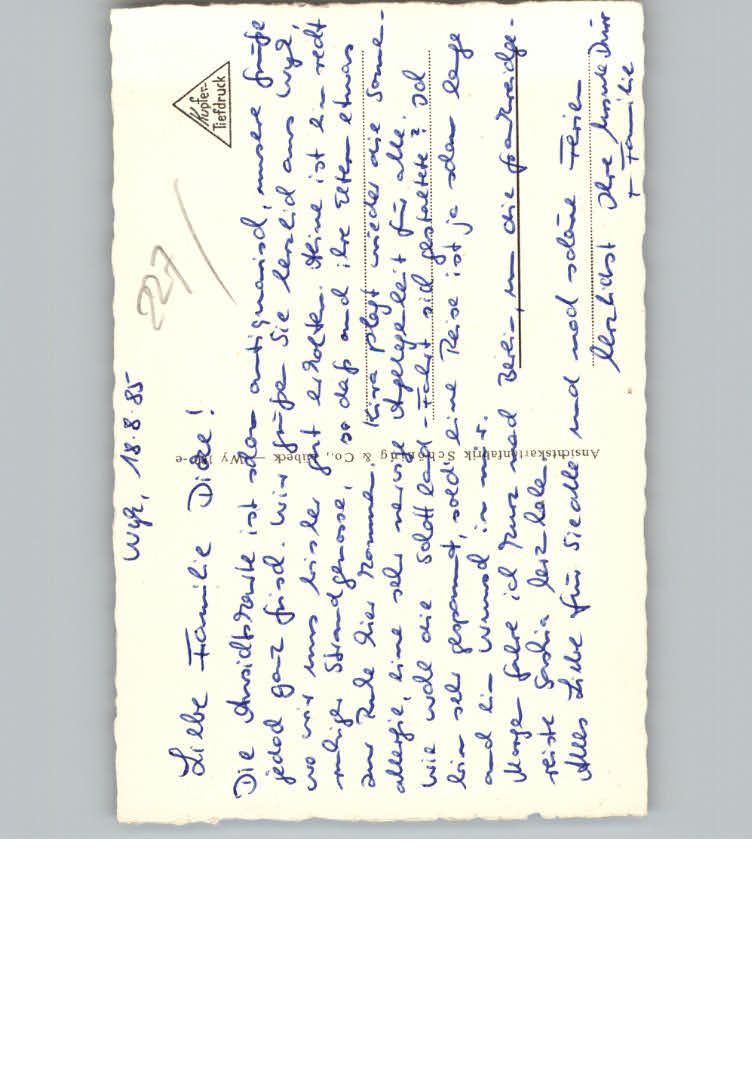 Wyk, 18.8.85
Liebe Familie Dicke!
Die Ansichtskarte ist schon antiquarisch, unsere Grüße
jedoch ganz frisch. Wir grüßen Sie herzlich aus Wyk,
wo wir uns bisher gut erholten. Meine ist ein recht
ruhiger Strandgenosse, so daß auch ihre Eltern etwas
zur Ruhe hier kommen. plagt wieder die Sonnen-
allergie, eine sehr nervige Angelegenheit für alle.
Wie wohl die Schottland-Fahrt sich gestaltete? Ich
bin sehr gespannt, solch' eine Reise ist ja schon lange
auch ein Wunsch in mir.
Morgen fahre ich kurz nach Berlin, um die
reiste herzhole.
Alles Liebe für Sie alle und noch schöne Ferien
Herzlichst Ihre
+ Familie
227/
Kupfer-
Tiefdruck
Ansichtskartenfabrik Schöning & Co., Lübeck — Wy